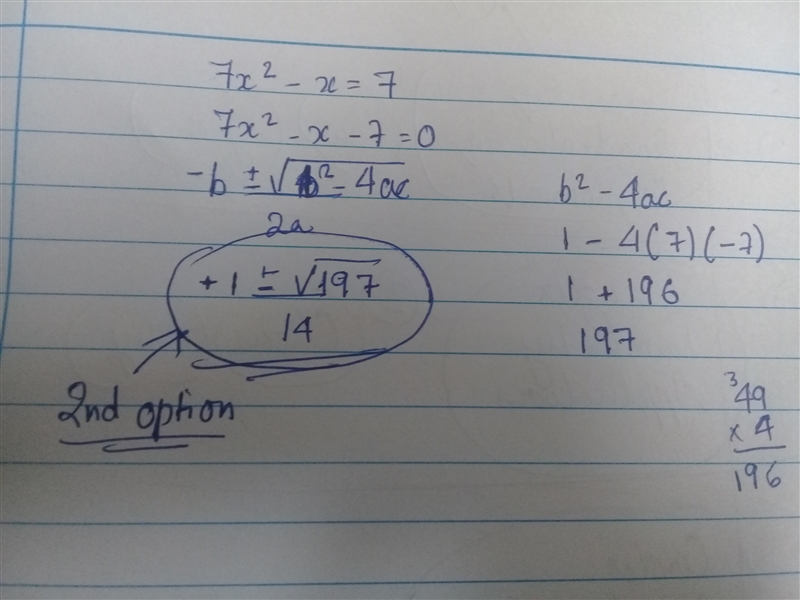 7x² - x = 7
7x² - x - 7 = 0
-b ± √b² - 4ac
2a
+1 ± √197
14
2nd option
b² - 4ac
1 - 4(7)(-7)
1 + 196
197
3
49
x 4
196